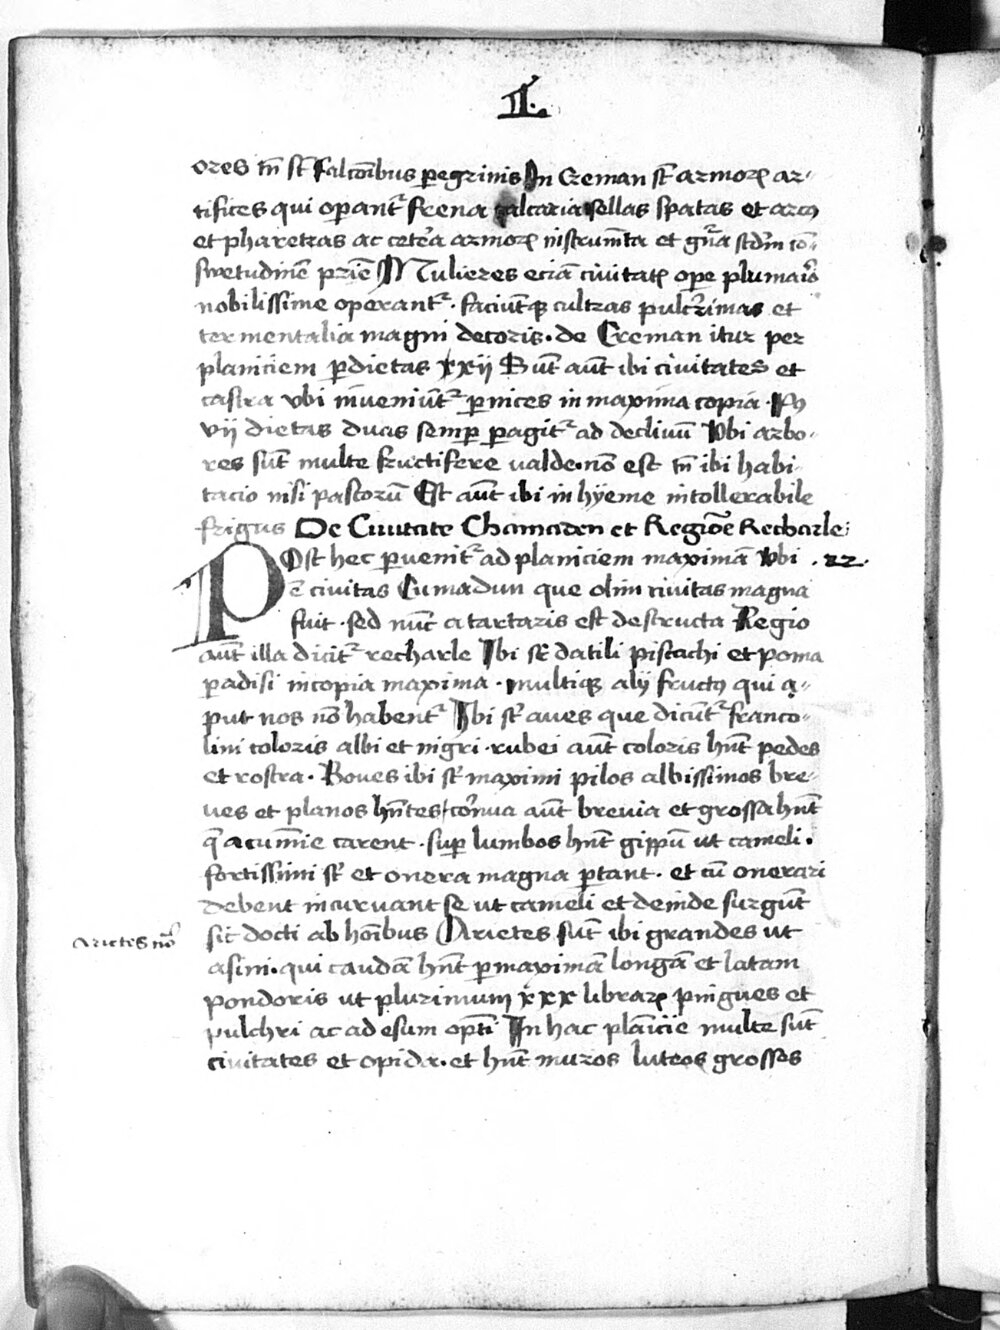 II.
ores tn̄ st̄ falcoībus peregrinis In Creman st̄ armoꝝ ar-
tifices qui operant᷑ frena calcaria sellas spatas et arcꝰ
et pharetras ac cetera armoꝝ instrumēta et gn̄a scd̄m cō-
swetudinē p̄rie Mulieres eciā ciuitatꝭ ope plumario
nobilissime operant᷑. faciūtqꝫ cultras pulcr̄rimas et
ceruicalia magni decoris. de Creman itur per
planiciem per dietas xxij Sūt aūt ibi ciuitates et
castra vbi inveniūt᷑ perdices in maxima copia. Per
vij dietas ducis semꝑ ꝑagit᷑ ad decliuū Vbi arbo-
res sūt multe fructifere valde. nō est tn̄ ibi habi-
tacio nisi pastorū Est aūt ibi in hyeme intollerabile
frigus De Ciuitate Chamaden et Regiōe Recharle:
POst hec ꝑuenit᷑ ad planiciem maximā Vbi .22.
ē ciuitas Cumadun que olim ciuitas magna
fuit. sed nūc a tartaris est destructa Regio
aūt illa dicit᷑ recharle Ibi st̄ datili pistachi et poma
ꝑadisi in copia maxima. multiqꝫ alij fructꝰ qui a-
put nos nō habent᷑ Ibi st̄ aues que dicūt᷑ franco-
lini coloris albi et nigri. rubei aūt coloris hn̄t pedes
et rostra. Boues ibi st̄ maximi pilos albissimos bre-
ves et planos hn̄tes cornua aūt brevia et grossa hn̄t
q̄ acumīe carent. suꝑ lumbos hn̄t gippū ut cameli.
fortissimi st̄ et onera magna ꝑtant. et cū onerari
debent incurvant se ut cameli et deinde surgūt
Arietes no͞
sic docti ab hoībus Arietes sūt ibi grandes ut
asini. qui caudā hn̄t ꝑmaximā longā et latam
pondoris ut plurimum xxx libraꝝ pingues et
pulchri ac ad esum opti In hac planicie multe sūt
ciuitates et opida. et hn̄t muros luteos grossos